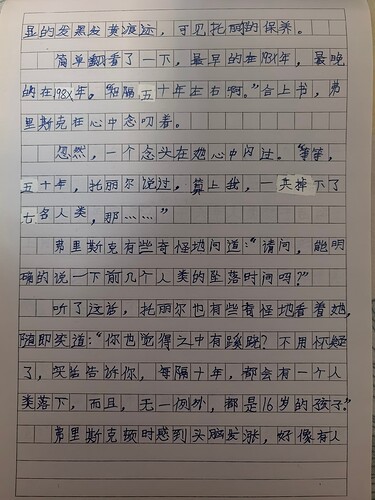 显的发黑发黄痕迹，可见托丽尔的保养。
简单翻看了一下，最早的在193X年，最晚
的在198X年。“相隔五十年左右啊。”合上书，弗
里斯克在心中念叨着。
忽然，一个念头在她心中闪过。“等等，
五十年，托丽尔说过，算上我，一共掉下了
七名人类，那……”
弗里斯克有些奇怪地问道：“请问，能明
确的说一下前几个人类的坠落时间吗？”
听了这话，托丽尔也有些奇怪地看着她，
随即笑道：“你也觉得之中有蹊跷？不用怀疑
了，实话告诉你，每隔十年，都会有一个人
类落下，而且，无一例外，都是16岁的孩子。”
弗里斯克顿时感到头脑发涨，好像有人